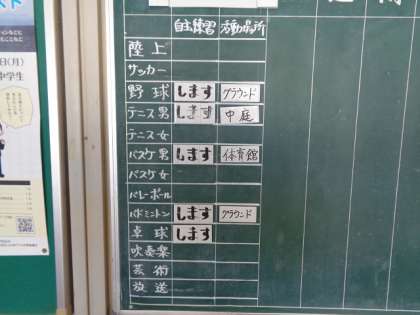 自主練習 活動場所
陸上
サッカー
野球 します グラウンド
テニス男 します 中庭
テニス女
バスケ男 します 体育館
バスケ女
バレーボール
バドミントン します グラウンド
卓球 します
吹奏楽
芸術
放送
(月)
中学生